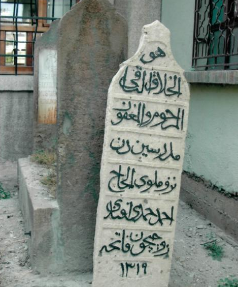 هو
الخلاق الباقی
المرحوم والمغفور
مدرسین دن
نزهلوی الحاج
احمد حمدی افندی
روحیچون فاتحه
١٣١٩